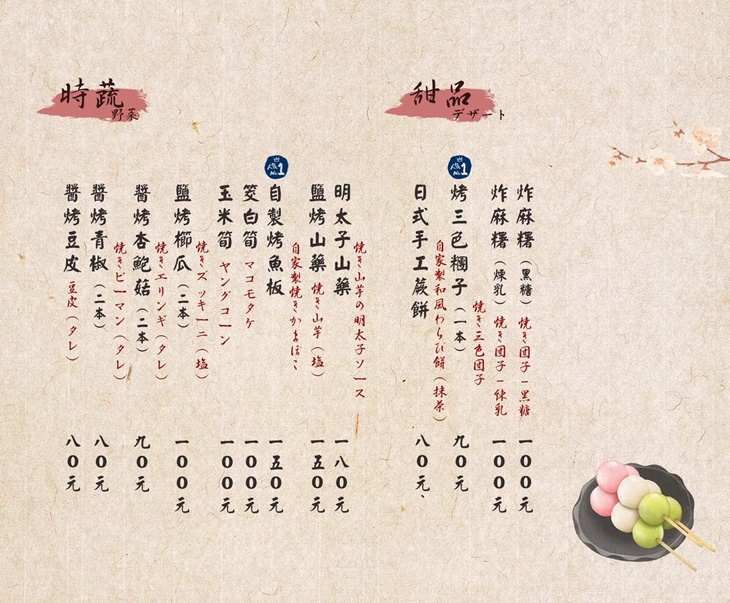 甜品
デザート
炸麻糬（黑糖）
焼き団子ー黒糖
一００元
炸麻糬（煉乳）
焼き団子ー練乳
一００元
人気No.1
烤三色糰子（一本）
焼き三色団子
九０元
日式手工蕨餅
自家製和風わらび餅（抹茶）
八０元、
時蔬
野菜
明太子山藥
焼き山芋の明太子ソース
一八０元
鹽烤山藥
焼き山芋（塩）
一五０元
人気No.1
自製烤魚板
自家製焼きかまぼこ
一五０元
筊白筍
マコモタケ
一００元
玉米筍
ヤングコーン
一００元
鹽烤櫛瓜（二本）
焼きズッキーニ（塩）
一００元
醬烤杏鮑菇（二本）
焼きエリンギ（タレ）
九０元
醬烤青椒（二本）
焼きピーマン（タレ）
八０元
醬烤豆皮
豆皮（タレ）
八０元